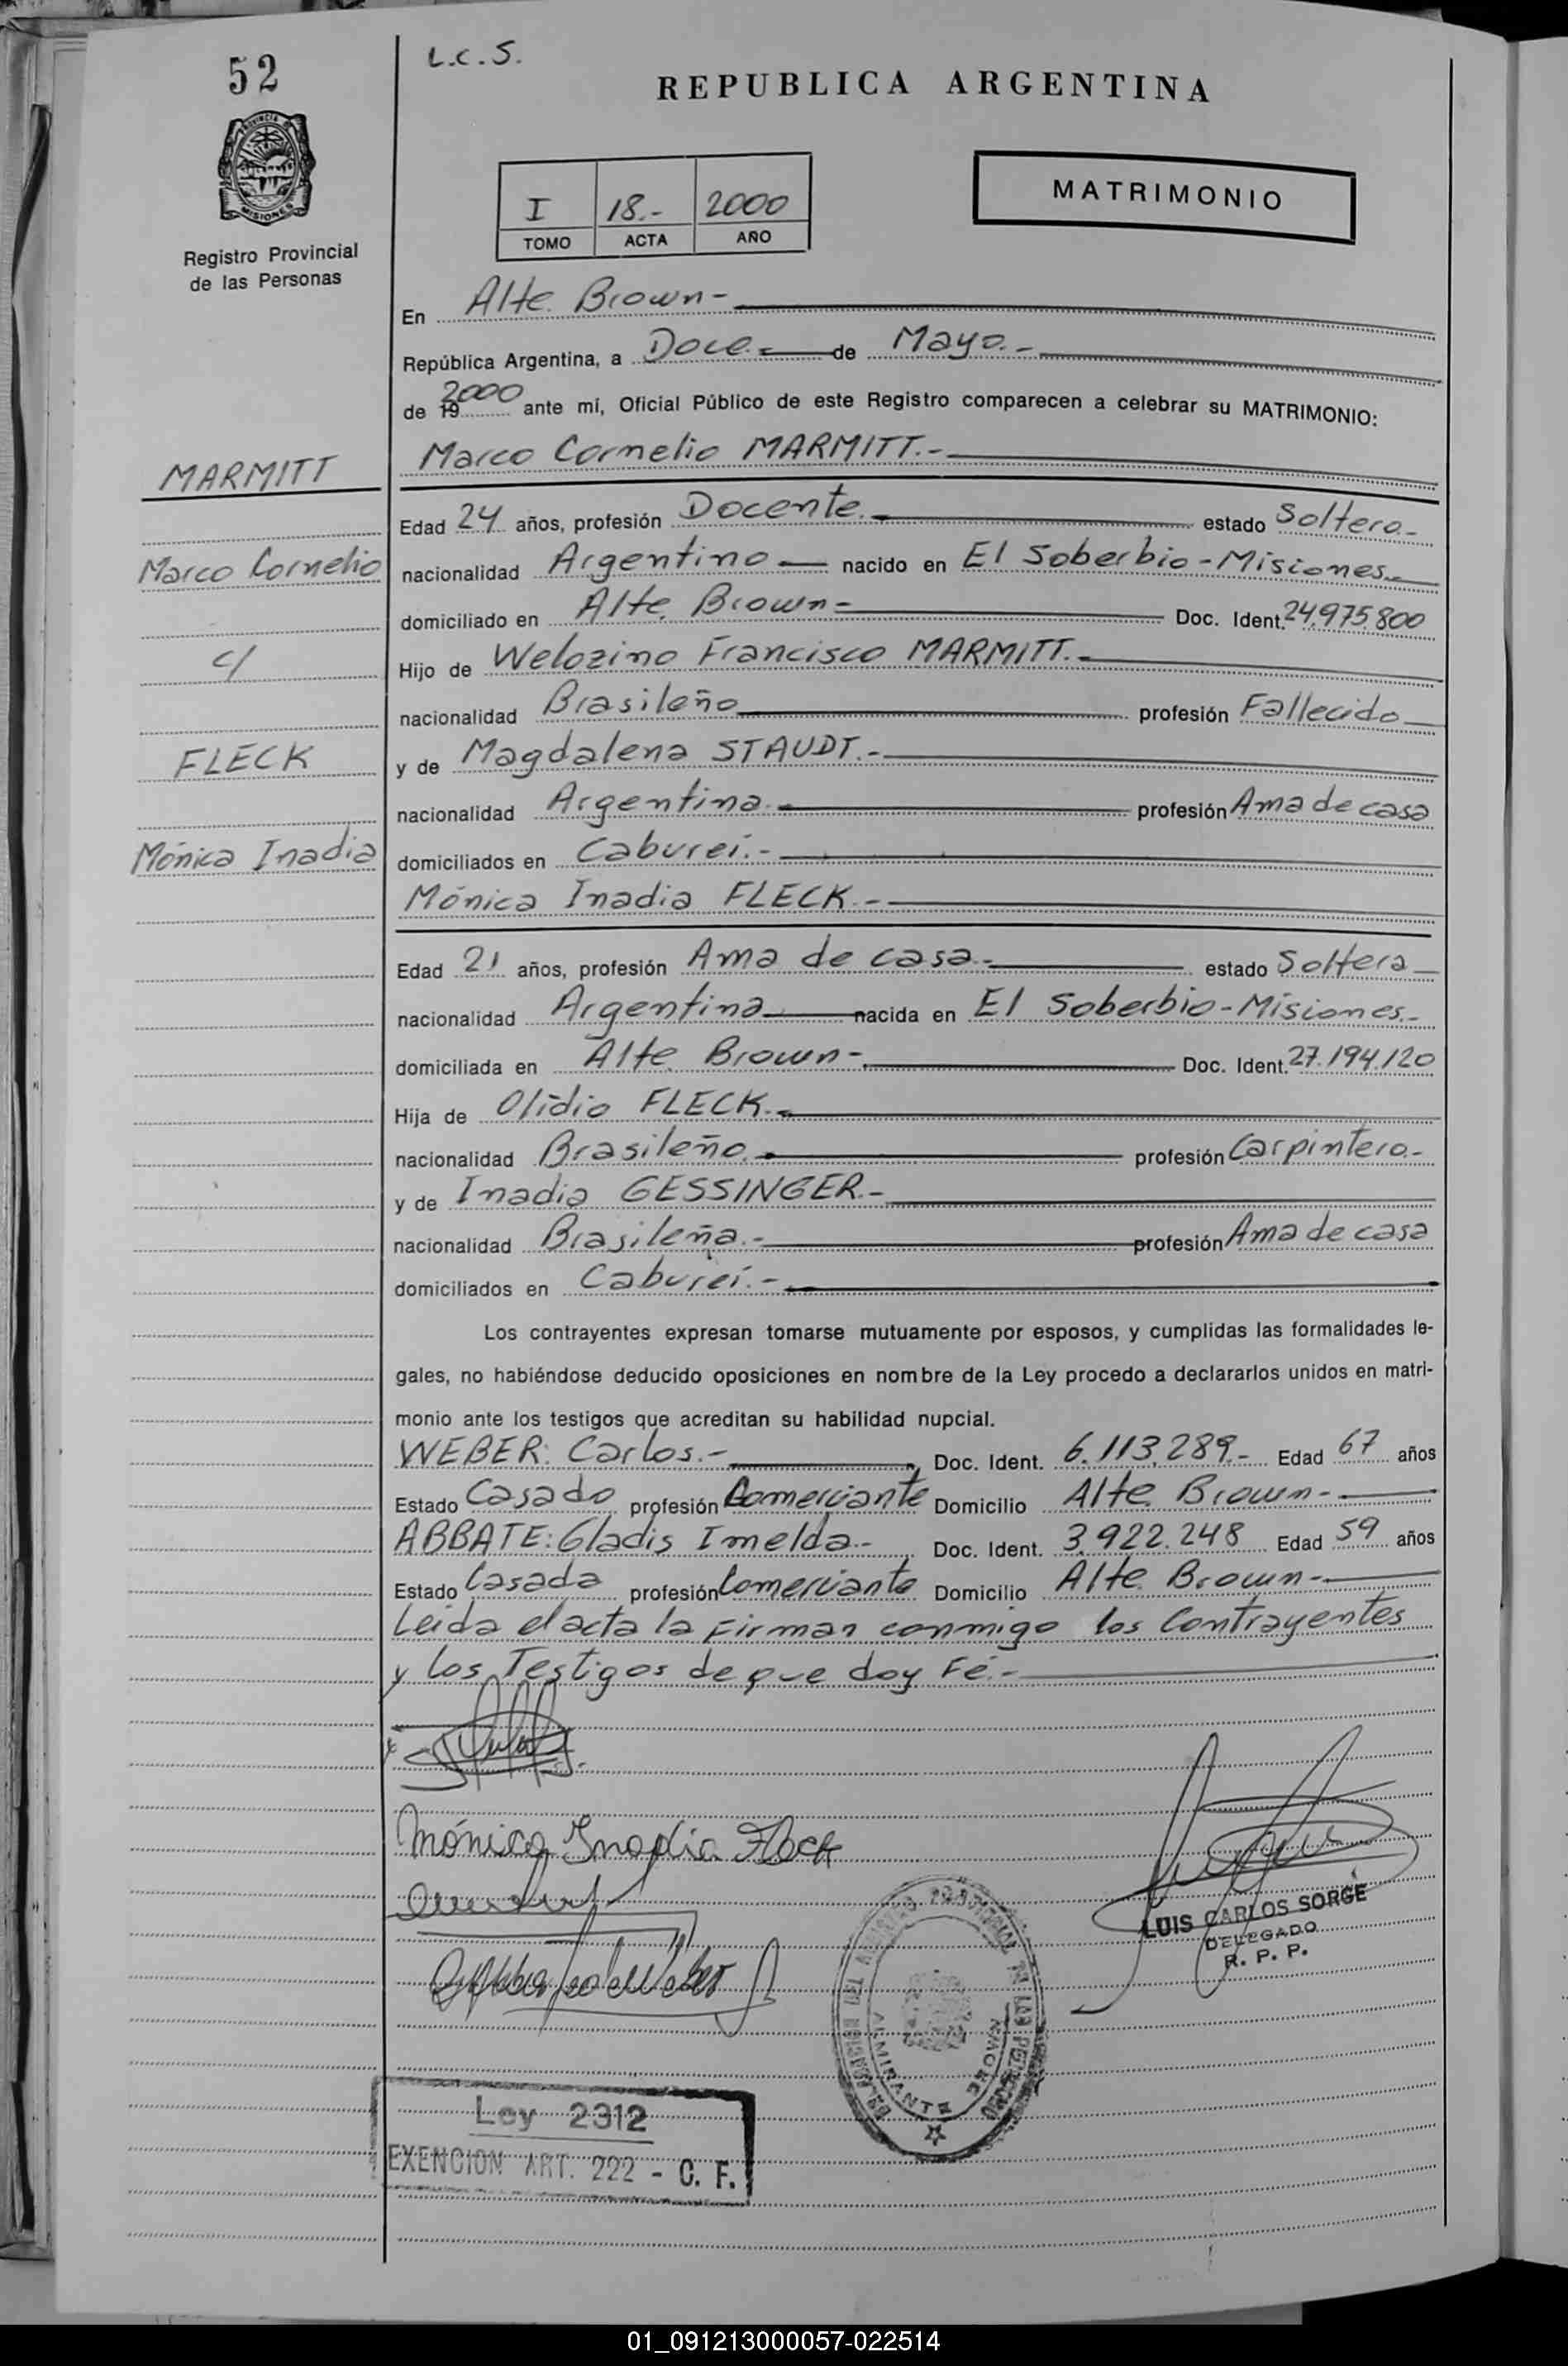 52
L.C.S.
REPUBLICA ARGENTINA
PROVINCIA DE
MISIONES
Registro Provincial
de las Personas
I 18.- 2000
TOMO ACTA AÑO
MATRIMONIO
En Alte. Brown-
República Argentina, a Doce.- de Mayo.-
de 19 2000 ante mí, Oficial Público de este Registro comparecen a celebrar su MATRIMONIO:
Marco Cornelio MARMITT.-
MARMITT
Edad 24 años, profesión Docente.- estado Soltero.-
Marco Cornelio
nacionalidad Argentino nacido en El Soberbio-Misiones.-
domiciliado en Alte. Brown- Doc. Ident. 24.975.800
c/
Hijo de Welozino Francisco MARMITT.-
nacionalidad Brasileño profesión Fallecido
FLECK
y de Magdalena STAUDT.-
nacionalidad Argentina.- profesión Ama de casa
Mónica Inadia
domiciliados en Cabureí.-
Mónica Inadia FLECK.-
Edad 21 años, profesión Ama de casa.- estado Soltera
nacionalidad Argentina nacida en El Soberbio-Misiones.-
domiciliada en Alte. Brown- Doc. Ident. 27.194.120
Hija de Olidio FLECK.-
nacionalidad Brasileño.- profesión Carpintero.-
y de Inadia GESSINGER.-
nacionalidad Brasileña.- profesión Ama de casa
domiciliados en Cabureí.-
Los contrayentes expresan tomarse mutuamente por esposos, y cumplidas las formalidades le-
gales, no habiéndose deducido oposiciones en nombre de la Ley procedo a declararlos unidos en matri-
monio ante los testigos que acreditan su habilidad nupcial.
WEBER: Carlos.- Doc. Ident. 6.113.289.- Edad 67 años
Estado Casado profesión Comerciante Domicilio Alte. Brown-
ABBATE: Gladis Imelda.- Doc. Ident. 3.922.248 Edad 59 años
Estado Casada profesión Comerciante Domicilio Alte. Brown-
Leida el acta la Firman conmigo los Contrayentes
y los Testigos de que doy Fé.-
Mónica Inadia Fleck
LUIS CARLOS SORGE
DELEGADO
R. P. P.
ALMIRANTE BROWN
Ley 2312
EXENCION ART. 222 - C. F.
01_091213000057-022514